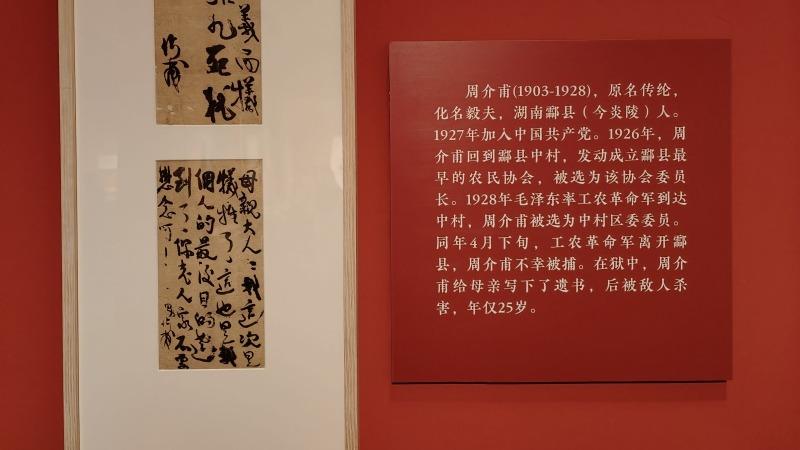 義而犧
介甫
母親大人：我這次是
犧牲了，這也是我
個人的最後目的達
到了，你老人家不要
念可！
周介甫
周介甫(1903-1928)，原名传纶，
化名毅夫，湖南酃县（今炎陵）人。
1927年加入中国共产党。1926年，周
介甫回到酃县中村，发动成立酃县最
早的农民协会，被选为该协会委员
长。1928年毛泽东率工农革命军到达
中村，周介甫被选为中村区委委员。
同年4月下旬，工农革命军离开酃
县，周介甫不幸被捕。在狱中，周介
甫给母亲写下了遗书，后被敌人杀
害，年仅25岁。